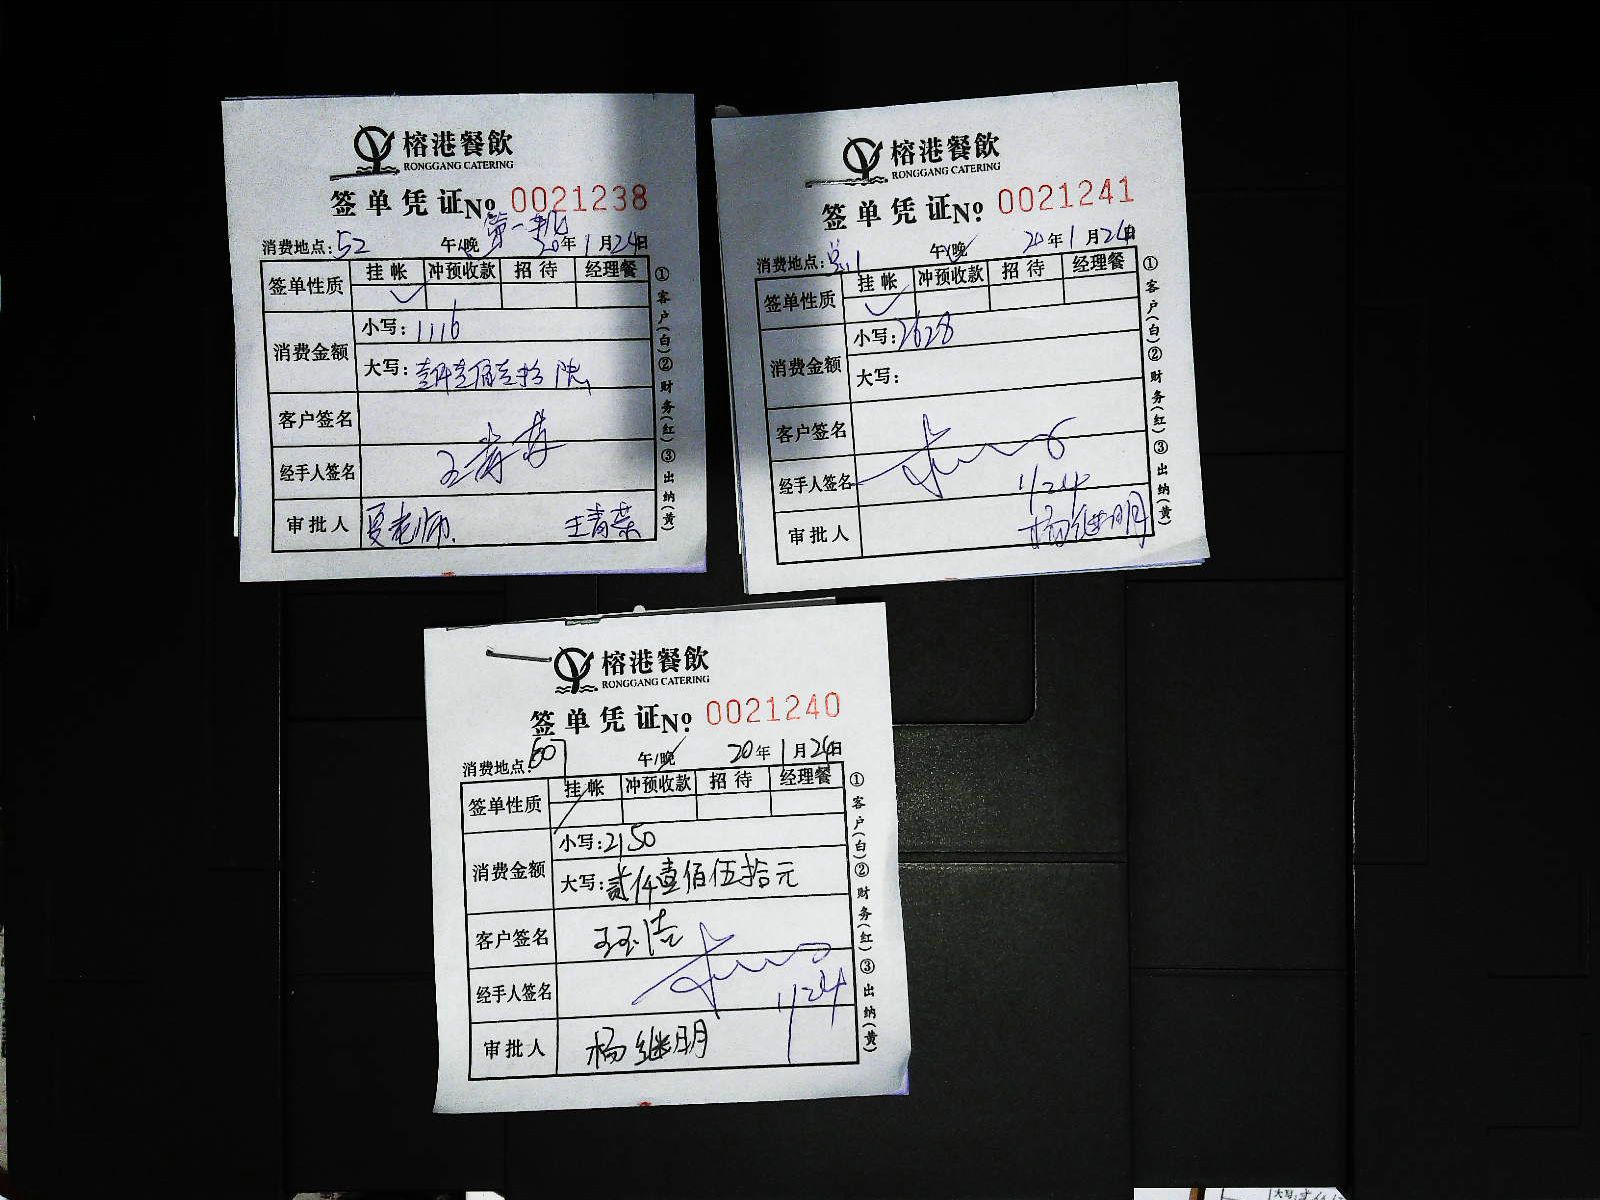 榕港餐飲
RONGGANG CATERING
签单凭证№ 0021238
第一批
消费地点:52 午/晚 20年1月24日
签单性质 挂帐 冲预收款 招待 经理餐
消费金额 小写:1116
大写:壹仟壹佰壹拾陆
客户签名
经手人签名
审批人 夏老师. 王青葉
①客户(白)②财务(红)③出纳(黄)
榕港餐飲
RONGGANG CATERING
签单凭证№ 0021241
消费地点: 午/晚 20年1月24日
签单性质 挂帐 冲预收款 招待 经理餐
消费金额 小写:2628
大写:
客户签名
经手人签名 1/24
审批人 杨继明
①客户(白)②财务(红)③出纳(黄)
榕港餐飲
RONGGANG CATERING
签单凭证№ 0021240
消费地点:607 午/晚 20年1月24日
签单性质 挂帐 冲预收款 招待 经理餐
消费金额 小写:2150
大写:贰仟壹佰伍拾元
客户签名 王玉洁
经手人签名 1/24
审批人 杨继明
①客户(白)②财务(红)③出纳(黄)
大写: